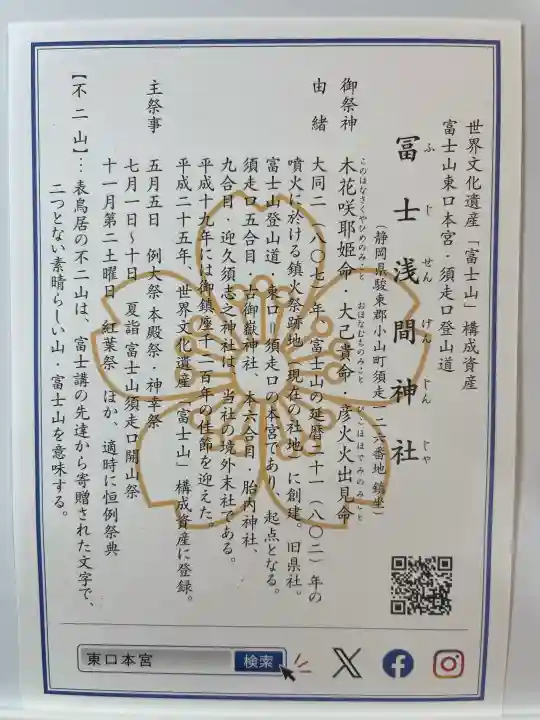 世界文化遺産「富士山」構成資産
富士山東口本宮・須走口登山道
冨士浅間神社
ふじせんげんじんじゃ
（静岡県駿東郡小山町須走一二六番地 鎮坐）
御祭神 木花咲耶姫命・大己貴命・彦火火出見命
このはなさくやひめのみこと おほなむちのみこと ひこほほでみのみこと
由緒 大同二（八〇七）年、富士山の延暦二十一（八〇二）年の
噴火に於ける鎮火祭跡地（現在の社地）に創建。旧県社。
富士山登山道・東口＝須走口の本宮であり、起点となる。
須走口五合目・古御嶽神社、本六合目・胎内神社、
九合目・迎久須志之神社は、当社の境外末社である。
平成十九年には御鎮座千二百年の佳節を迎えた。
平成二十五年、世界文化遺産「富士山」構成資産に登録。
主祭事 五月五日 例大祭 本殿祭・神幸祭
七月一日～十日 夏詣 富士山須走口開山祭
十一月第二土曜日 紅葉祭 ほか、適時に恒例祭典
【不二山】…表鳥居の不二山は、富士講の先達から寄贈された文字で、
二つとない素晴らしい山・富士山を意味する。
東口本宮 検索